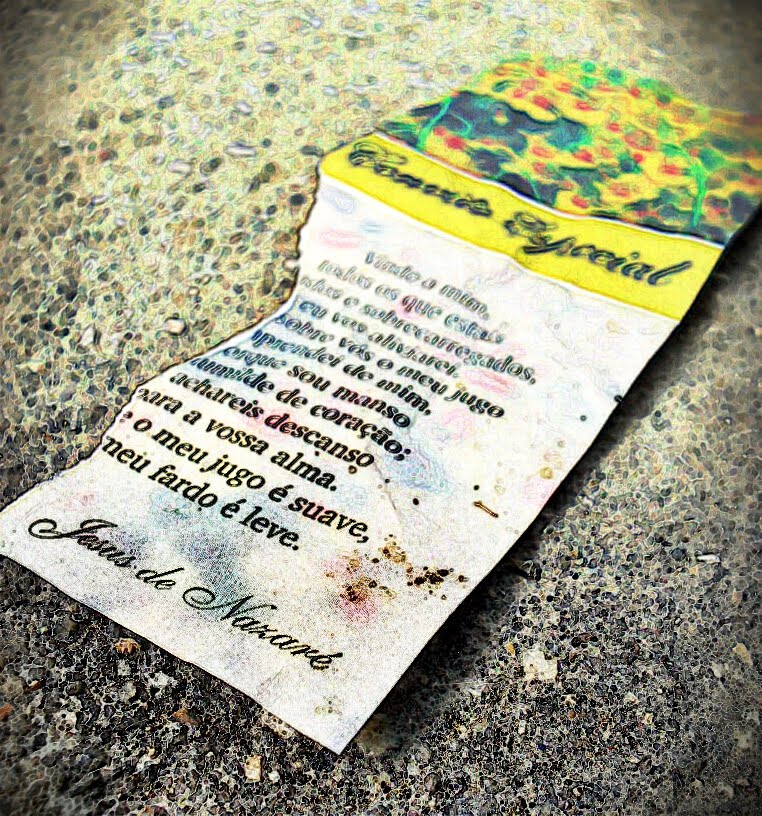 Convite Especial
Vinde a mim,
todos os que estais
e sobrecarregados,
Eu vos aliviarei
sobre vós o meu jugo
aprendei de mim,
orque sou manso
umilde de coração;
achareis descanso
para a vossa alma.
e o meu jugo é suave,
neu fardo é leve.
Jesus de Nazaré